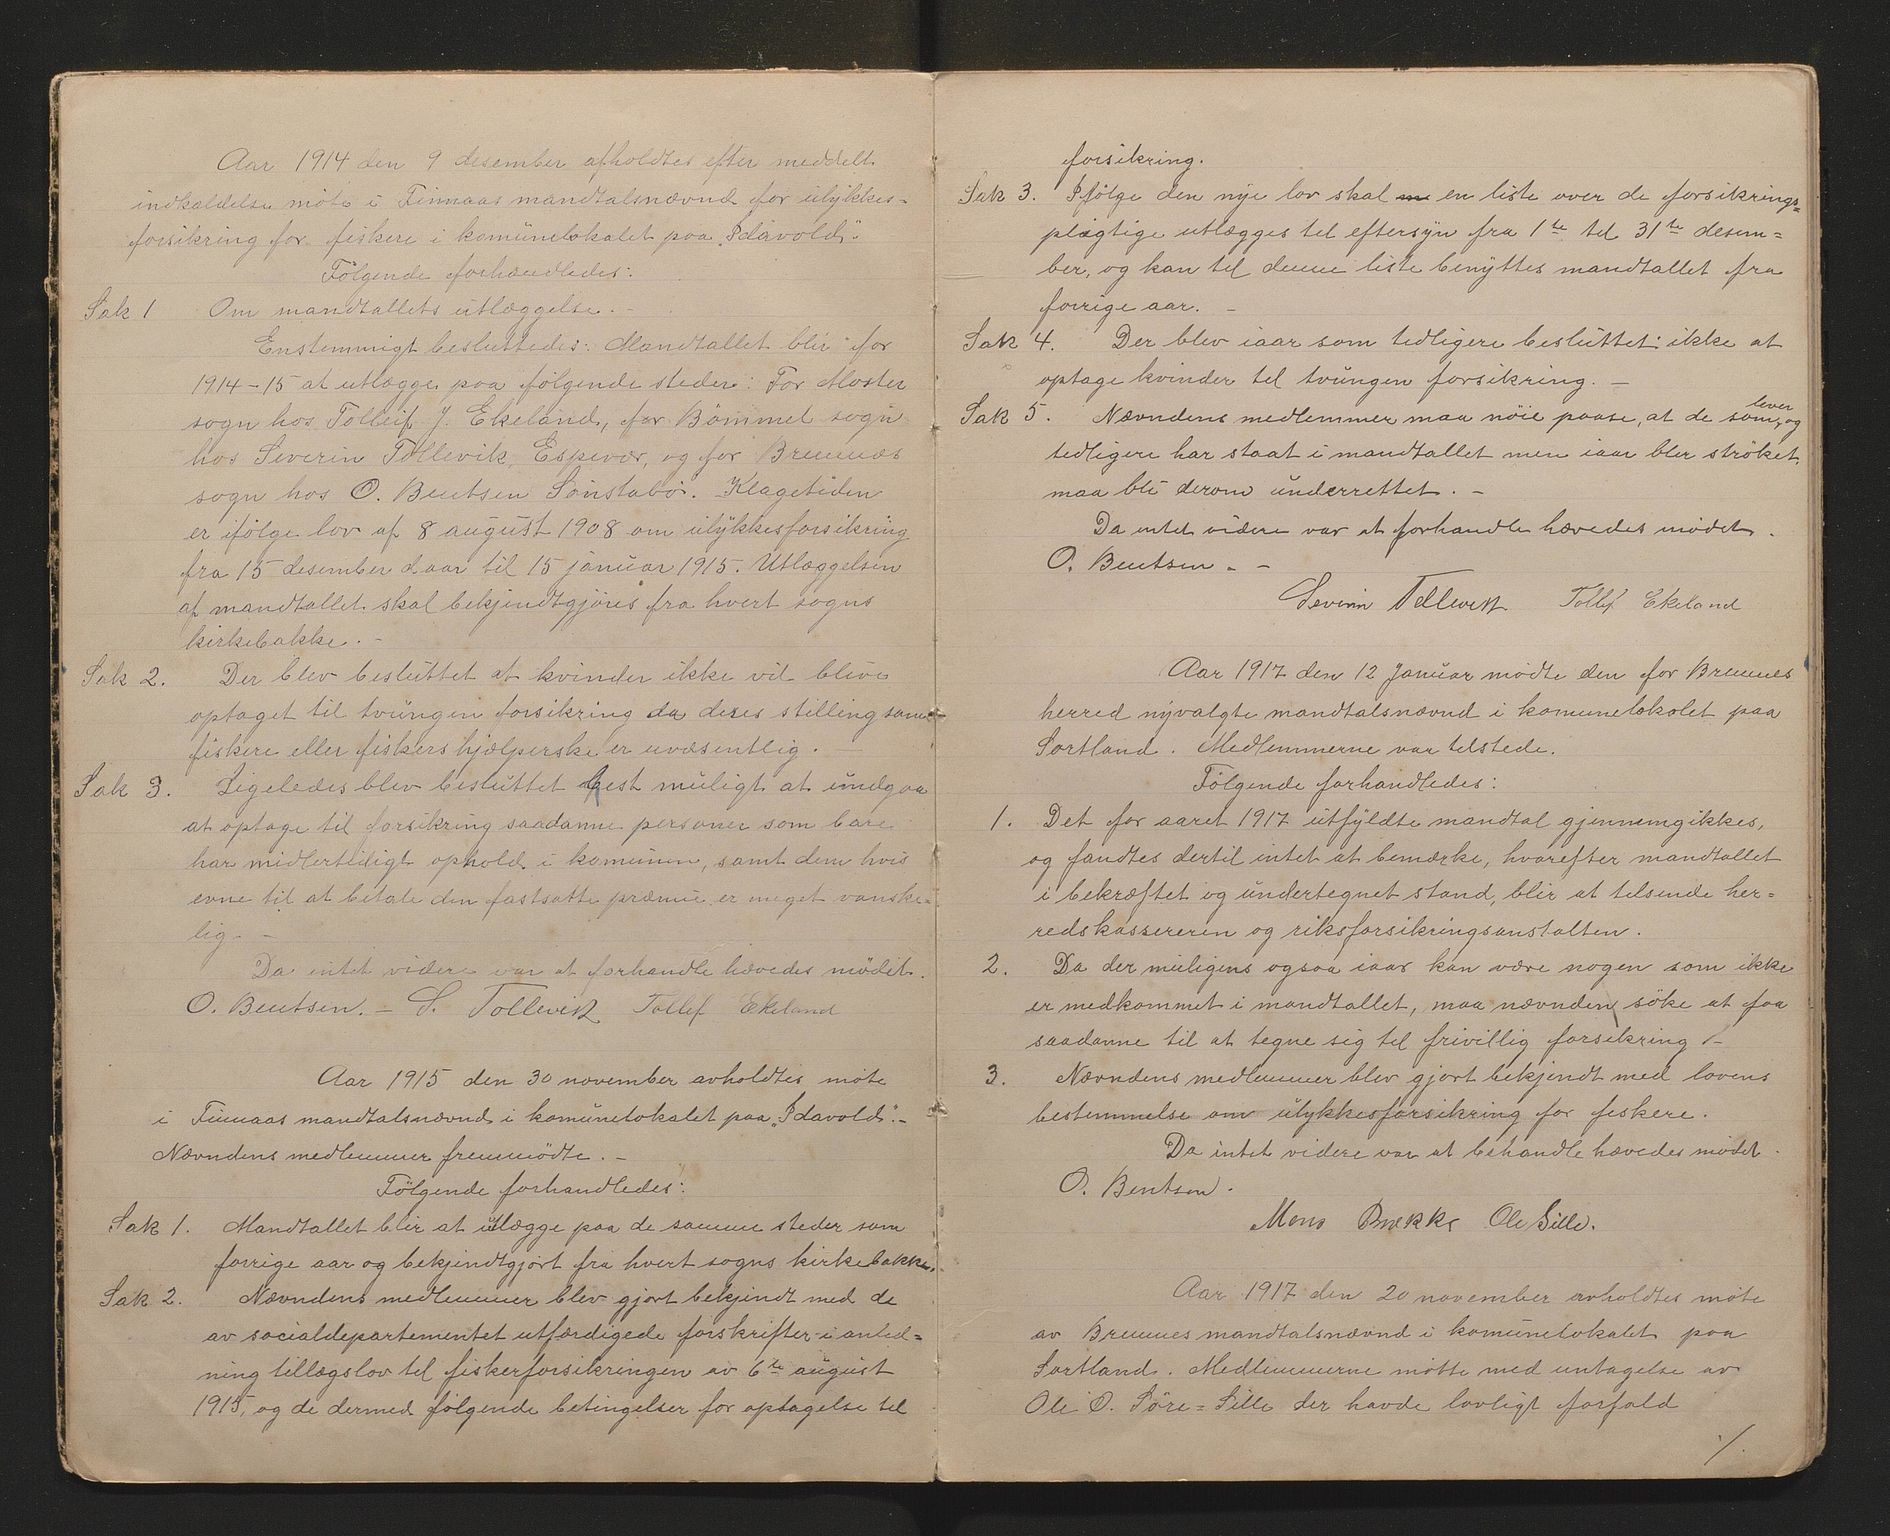 Aar 1914 den 9 desember afholdtes efter meddelt
indkaldelse möte i Finnaas mandtalsnævnd for ulykkes=
forsikring for fiskere i komunelokalet paa „Idavold“.
Fölgende forhandledes:
Sak 1 Om mandtallets utlæggelse. -
Enstemmigt besluttedes: Mandtallet blir for
1914-15 at utlægge paa følgende steder: For Moster
sogn hos Tolleif J. Ekeland, for Bömmel sogn
hos Severin Tollevik, Espevær, og for Bremnes
sogn hos O. Bentsen Sönstabö. Klagetiden
er ifölge lov af 8 august 1908 om ulykkesforsikring
fra 15 desember d aar til 15 januar 1915. Utlæggelsen
af mandtallet skal bekjendtgjöres fra hvert sogns
kirkebakke. -
Sak 2. Der blev besluttet at kvinder ikke vil blive
optaget til tvungen forsikring da deres stilling som
fiskere eller fiskers hjælperske er uvæsentlig. -
Sak 3. Ligeledes blev besluttet best muligt at undgaa
at optage til forsikring saadanne personer som bare
har midlertidigt ophold i komunen, samt dem hvis
evne til at betale den fastsatte præmie er meget vanske-
lig. -
Da intet videre var at forhandle hævedes mödet.
O. Bentsen. - S. Tollevik Tollef Ekeland
Aar 1915 den 30 november avholdtes möte
i Finnaas mandtalsnævnd i komunelokalet paa „Idavold“. -
Nævndens medlemmer fremmödte. -
Fölgende forhandledes:
Sak 1. Mandtallet blir at utlægge paa de samme steder som
forrige aar og bekjendtgjort fra hvert sogns kirkebakke.
Sak 2. Nævndens medlemmer blev gjort bekjendt med de
av socialdepartementet utfærdigede forskrifter i anled=
ning tillægslov til fiskerforsikringen av 6te august
1915, og de dermed fölgende betingelser for optagelse til
forsikring.
Sak 3. Ifölge den nye lov skal en liste over de forsikrings=
pligtige utlægges til eftersyn fra 1te til 31te desem=
ber, og kan til denne liste benyttes mandtallet fra
forrige aar. -
Sak 4. Der blev iaar som tidligere besluttet: ikke at
optage kvinder til tvungen forsikring. -
Sak 5. Nævndens medlemmer maa nöie paase, at de som lever og
tidligere har staat i mandtallet men iaar blir ströket,
maa bli derom underrettet. -
Da intet videre var at forhandle hævedes mödet.
O. Bentsen - -
Severin Tollevik Tollef Ekeland
Aar 1917 den 12 Januar mödte den for Bremnes
herred nyvalgte mandtalsnævnd i komunelokalet paa
Sortland. Medlemmerne var tilstede.
Fölgende forhandledes:
1. Det for aaret 1917 utfyldte mandtal gjennemgikkes,
og fandtes dertil intet at bemærke, hvorefter mandtallet
i bekræftet og undertegnet stand, blir at tilsende her=
redskassereren og riksforsikringsanstalten.
2. Da der muligens ogsaa iaar kan være nogen som ikke
er medkommet i mandtallet, maa nævnden söke at faa
saadanne til at tegne sig til frivillig forsikring. -
3. Nævndens medlemmer blev gjort bekjendt med lovens
bestemmelse om ulykkesforsikring for fiskere.
Da intet videre var at behandle hævedes mödet.
O. Bentsen.
Mons Brække Ole Sille.
Aar 1917 den 20 november avholdtes möte
av Bremnes mandtalsnævnd i komunelokalet paa
Sortland. Medlemmerne mötte med untagelse av
Ole O. Söre=Sille der havde lovligt forfald
./.